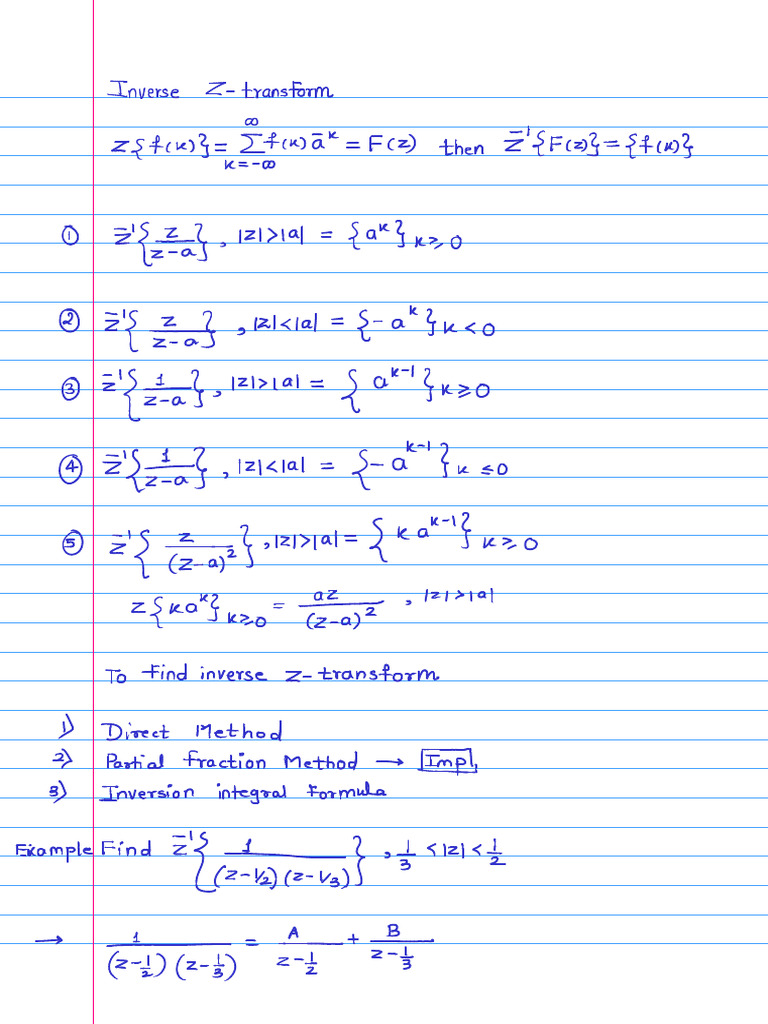 Inverse Z-transform
Z{f(k)} = ∞Σk=-∞ f(k) a̅ᵏ = F(z) then z̅¹{F(z)} = {f(k)}
① z̅¹{z/(z-a)}, |z|>|a| = {aᵏ} k≥0
② z̅¹{z/(z-a)}, |z|<|a| = {-aᵏ} k<0
③ z̅¹{1/(z-a)}, |z|>|a| = {aᵏ⁻¹} k≥0
④ z̅¹{1/(z-a)}, |z|<|a| = {-aᵏ⁻¹} k≤0
⑤ z̅¹{z/(z-a)²}, |z|>|a| = {k aᵏ⁻¹} k≥0
z{kaᵏ} k≥0 = az/(z-a)², |z|>|a|
To find inverse z-transform
1) Direct Method
2) Partial fraction Method → Imp
3) Inversion integral formula
Example Find z̅¹{1/((z-1/2)(z-1/3))}, 1/3 <|z|< 1/2
→ 1/((z-1/2)(z-1/3)) = A/(z-1/2) + B/(z-1/3)